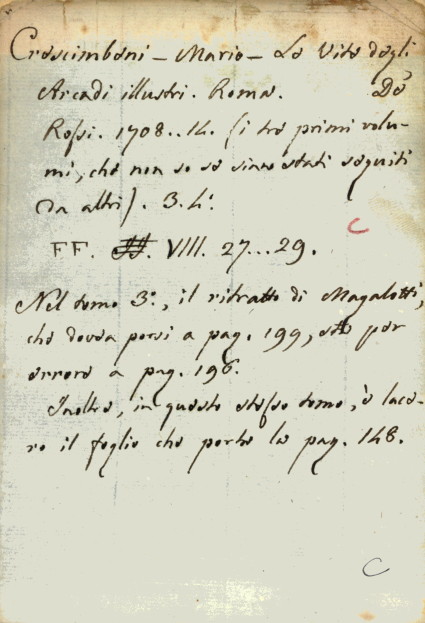 Crescimbeni - Mario - Le Vite degli
Arcadi illustri. Roma. De
Rossi. 1708..14. (i tre primi volu-
mi, che non so se siano stati seguiti
da altri). 3. 4.
C
FF. VIII. 27...29.
Nel tomo 3º, il ritratto di Magalotti,
che dovea porsi a pag. 199, sta per
errore a pag. 196.
Inoltre, in questo stesso tomo, è lace-
ro il foglio che porta la pag. 148.
C